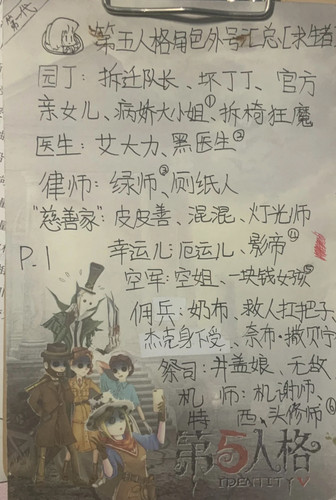 第一代
第五人格角色外号汇总[求生者
园丁：拆迁队长、坏丁丁、官方
亲女儿、病娇大小姐①拆椅狂魔
医生：艾大力、黑医生②
律师：绿师③厕纸人
"慈善家"：皮皮善、混混、灯光师
P.1
幸运儿：厄运儿、影帝④
空军：空姐、一块钱女孩⑤
佣兵：奶布、救人扛把子、
杰克身下受、奈布·撒贝宁
祭司：井盖娘、无敌
机师：机谢师、
特西、头修师⑥
第5人格
IDENTITY V